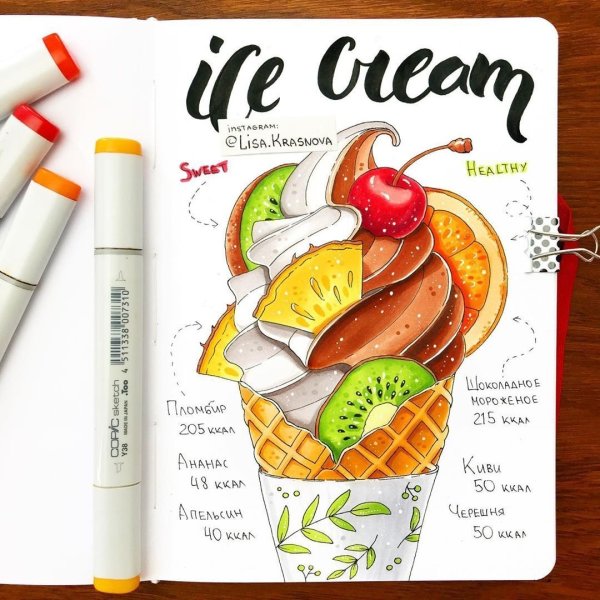 ice cream
INSTAGRAM:
@LISA.KRASNOVA
SWEET
HEALTHY
ПЛОМБИР
205 ККАЛ
АНАНАС
48 ККАЛ
АПЕЛЬСИН
40 ККАЛ
ШОКОЛАДНОЕ
МОРОЖЕНОЕ
215 ККАЛ
КИВИ
50 ККАЛ
ЧЕРЕШНЯ
50 ККАЛ
COPIC sketch
MADE IN JAPAN .Too
Y38
4 511338 007310